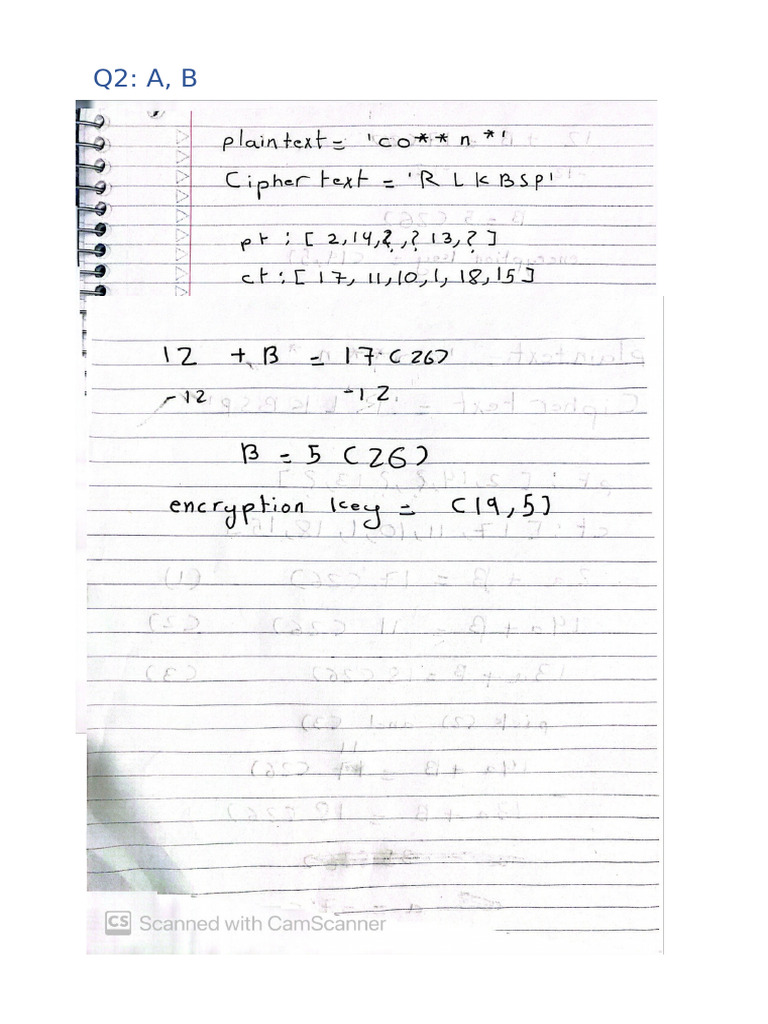 Q2: A, B
plaintext = 'co**n*'
Cipher text = 'RLKBSP'
pt : [2,14,?,? 13,?]
ct : [17, 11,10,1, 18,15]
12 + B = 17 (26)
-12 -12.
B = 5 (26)
encryption key = (19,5)
CS Scanned with CamScanner